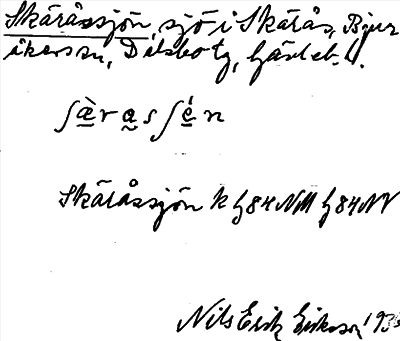 Skäråssjön, sjö i Skärås, Bjur
åkers sn, Delsbo tg, Gävleb. l.
ʃæ̀rasʃén
Skäråssjön k g84NM g84NV
Nils Erik Eriksson 193